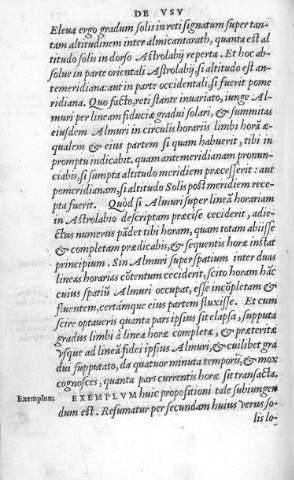 DE VSV
Eleva ergo gradum solis in reti signatum super tan-
tam altitudinem inter almicantarath, quanta est al
titudo solis in dorso Astrolabij reperta. Et hoc ab-
solue in parte orientali Astrolabij, si altitudo est an-
temeridiana: aut in parte occidentali, si fuerit pome
ridiana. Quo facto, reti stante inuariato, iunge Al-
muri per lineam fiduciæ gradui solari, & summitas
eiusdem Almuri in circulis horariis limbi horā æ-
qualem & eius partem si quam habuerit, tibi in
promptu indicabit. quam antemeridianam pronun-
ciabis, si sumpta altitudo meridiem præcesserit: aut
pomeridianam, si altitudo Solis post meridiem rece-
pta fuerit. Quòd si Almuri super lineā horariam
in Astrolabio descriptam præcise ceciderit, adie-
ctus numerus pādet tibi horam, quam totam abiisse
& completam prædicabis, & sequentis horæ instat
principium. Sin Almuri super spatium inter duas
lineas horarias cōtentum ceciderit, scito horam hāc
cuius spatiū Almuri occupat, esse incōpletam &
fluentem, certámque eius partem fluxisse. Et cum
scire optaueris quanta pars ipsius sit elapsa, supputa
gradus limbi à linea horæ completæ, & præteritæ
vsque ad lineā fidei ipsius Almuri, & cuilibet gra
dui supputato, da quatuor minuta temporis, & mox
cognosces, quanta pars currentis horæ sit transacta.
Exemplum EXEMPLVM huic propositioni tale subiungen
dum est. Resumatur per secundam huius verus so-
lis lo-